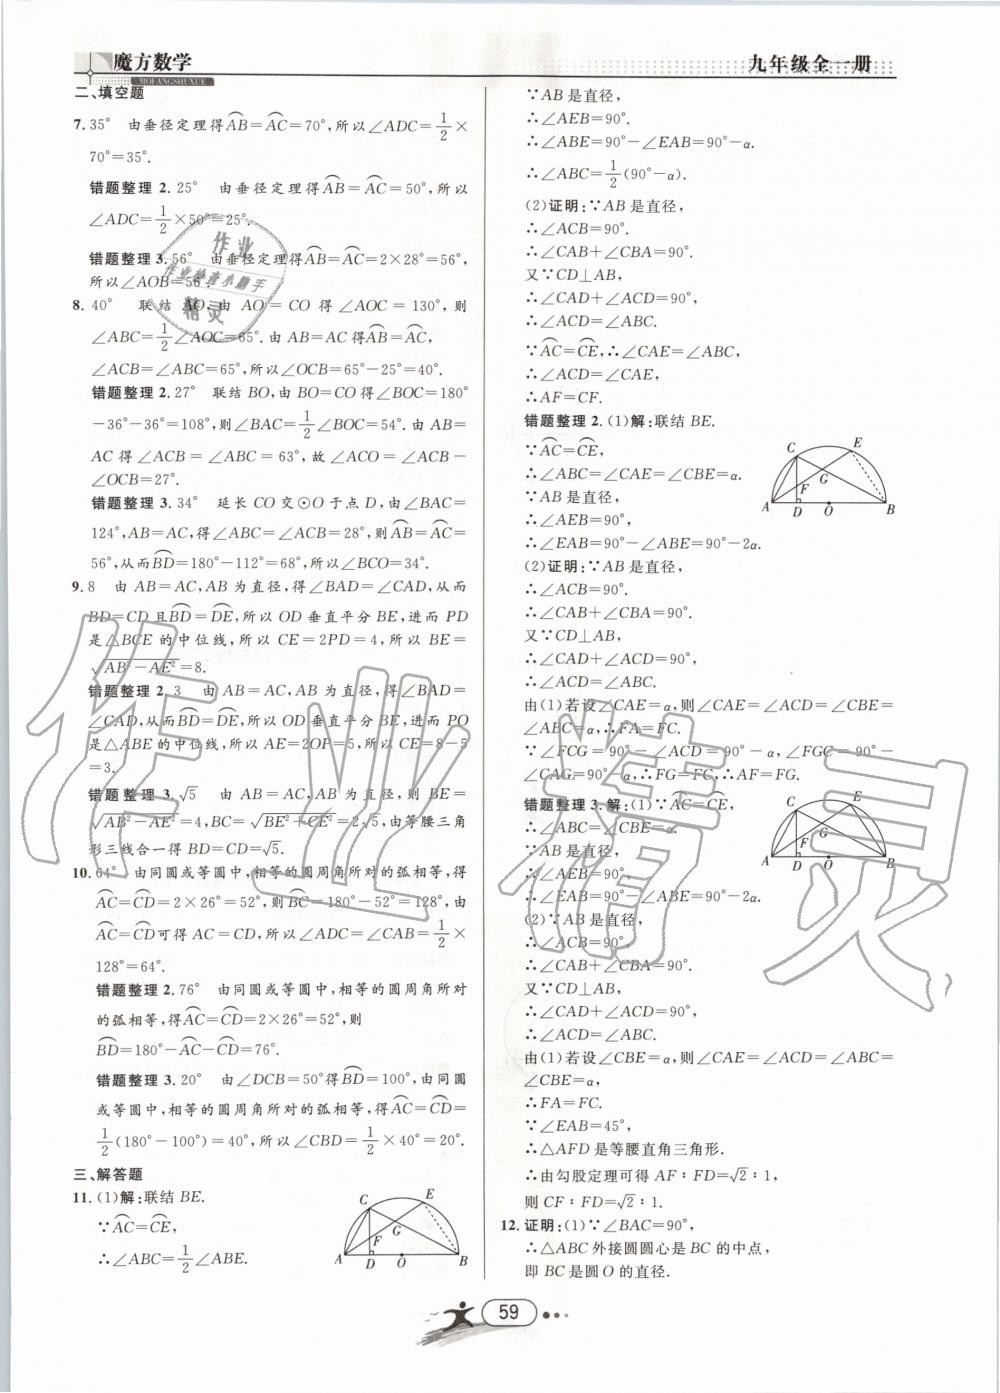 魔方数学
MOFANGSHUXUE
九年级全一册
二、填空题
7. 35° 由垂径定理得AB=AC=70°,所以∠ADC=1/2×
70°=35°.
错题整理 2. 25° 由垂径定理得AB=AC=50°,所以
∠ADC=1/2×50°=25°.
错题整理 3. 56° 由垂径定理得AB=AC=2×28°=56°,
所以∠AOB=56°.
8. 40° 联结 AO,由 AO=CO 得∠AOC=130°,则
∠ABC=1/2∠AOC=65°.由 AB=AC 得AB=AC,
∠ACB=∠ABC=65°,所以∠OCB=65°-25°=40°.
错题整理 2. 27° 联结 BO,由 BO=CO 得∠BOC=180°
-36°-36°=108°,则∠BAC=1/2∠BOC=54°.由 AB=
AC 得∠ACB=∠ABC=63°,故∠ACO=∠ACB-
∠OCB=27°.
错题整理 3. 34° 延长 CO 交⊙O 于点 D,由∠BAC=
124°,AB=AC,得∠ABC=∠ACB=28°,则AB=AC=
56°,从而BD=180°-112°=68°,所以∠BCO=34°.
9. 8 由 AB=AC,AB 为直径,得∠BAD=∠CAD,从而
BD=CD 且BD=DE,所以 OD 垂直平分 BE,进而 PD
是△BCE 的中位线,所以 CE=2PD=4,所以 BE=
√AB²-AE²=8.
错题整理 2. 3 由 AB=AC,AB 为直径,得∠BAD=
∠CAD,从而BD=DE,所以 OD 垂直平分 BE,进而 PO
是△ABE 的中位线,所以 AE=2OP=5,所以 CE=8-5
=3.
错题整理 3. √5 由 AB=AC,AB 为直径,则 BE=
√AB²-AE²=4,BC=√BE²+CE²=2√5,由等腰三角
形三线合一得 BD=CD=√5.
10. 64° 由同圆或等圆中,相等的圆周角所对的弧相等,得
AC=CD=2×26°=52°,则BC=180°-52°=128°,由
AC=CD可得 AC=CD,所以∠ADC=∠CAB=1/2×
128°=64°.
错题整理 2. 76° 由同圆或等圆中,相等的圆周角所对
的弧相等,得AC=CD=2×26°=52°,则
BD=180°-AC-CD=76°.
错题整理 3. 20° 由∠DCB=50°得BD=100°,由同圆
或等圆中,相等的圆周角所对的弧相等,得AC=CD=
1/2(180°-100°)=40°,所以∠CBD=1/2×40°=20°.
三、解答题
11. (1)解:联结 BE.
∵AC=CE,
∴∠ABC=1/2∠ABE.
A B C D E F G O
∵AB 是直径,
∴∠AEB=90°.
∴∠ABE=90°-∠EAB=90°-α.
∴∠ABC=1/2(90°-α).
(2)证明:∵AB 是直径,
∴∠ACB=90°.
∴∠CAB+∠CBA=90°.
又∵CD⊥AB,
∴∠CAD+∠ACD=90°,
∴∠ACD=∠ABC.
∵AC=CE,∴∠CAE=∠ABC,
∴∠ACD=∠CAE,
∴AF=CF.
错题整理 2. (1)解:联结 BE.
∵AC=CE,
∴∠ABC=∠CAE=∠CBE=α.
∵AB 是直径,
∴∠AEB=90°,
∴∠EAB=90°-∠ABE=90°-2α.
A B C D E F G O
(2)证明:∵AB 是直径,
∴∠ACB=90°.
∴∠CAB+∠CBA=90°.
又∵CD⊥AB,
∴∠CAD+∠ACD=90°,
∴∠ACD=∠ABC.
由(1)若设∠CAE=α,则∠CAE=∠ACD=∠CBE=
∠ABC=α,∴FA=FC.
∵∠FCG=90°-∠ACD=90°-α,∠FGC=90°-
∠CAG=90°-α,∴FG=FC,∴AF=FG.
错题整理 3.解:(1)∵AC=CE,
∴∠ABC=∠CBE=α.
∵AB 是直径,
∴∠AEB=90°,
∴∠EAB=90°-∠ABE=90°-2α.
A B C D E F G O
(2)∵AB 是直径,
∴∠ACB=90°,
∴∠CAB+∠CBA=90°.
又∵CD⊥AB,
∴∠CAD+∠ACD=90°,
∴∠ACD=∠ABC.
由(1)若设∠CBE=α,则∠CAE=∠ACD=∠ABC=
∠CBE=α,
∴FA=FC.
∵∠EAB=45°,
∴△AFD 是等腰直角三角形.
∴由勾股定理可得 AF∶FD=√2∶1,
则 CF∶FD=√2∶1.
12. 证明:(1)∵∠BAC=90°,
∴△ABC 外接圆圆心是 BC 的中点,
即 BC 是圆 O 的直径.
59
作业
作业检查小助手
精灵
作业精灵